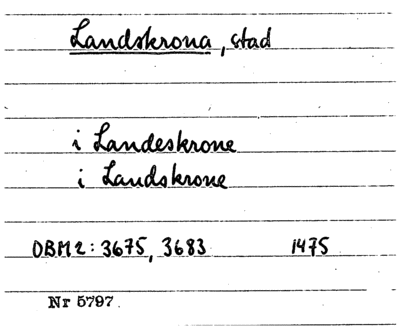 Landskrona, stad
i Landeskrone
i Landskrone
DBM 2: 3675, 3683 1475
Nr 5797